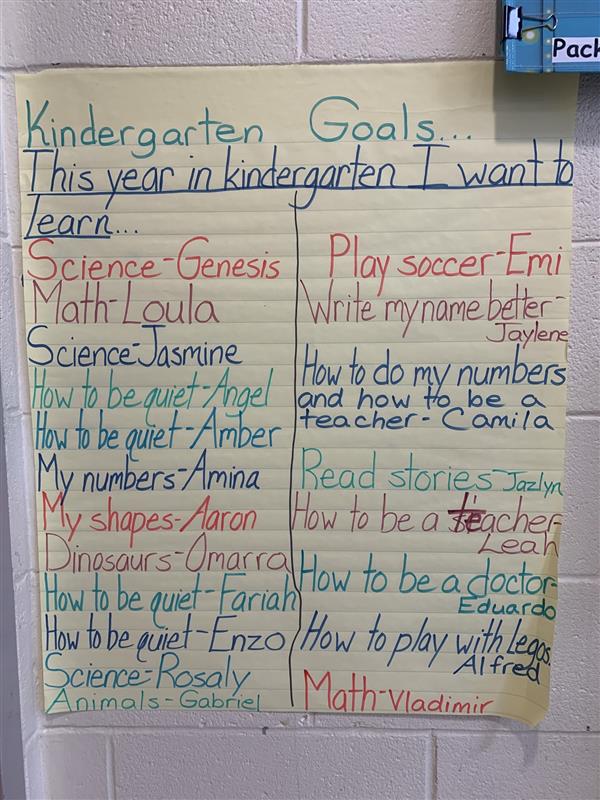 Pack
Kindergarten Goals...
This year in kindergarten I want to
learn...
Science-Genesis
Math-Loula
Science-Jasmine
How to be quiet-Angel
How to be quiet-Amber
My numbers-Amina
My shapes-Aaron
Dinosaurs-Omarra
How to be quiet-Fariah
How to be quiet-Enzo
Science-Rosaly
Animals-Gabriel
Play soccer-Emi
Write my name better-
Jaylene
How to do my numbers
and how to be a
teacher-Camila
Read stories-Jazlyn
How to be a teacher-
Leah
How to be a doctor-
Eduardo
How to play with Legos.
Alfred
Math-Vladimir